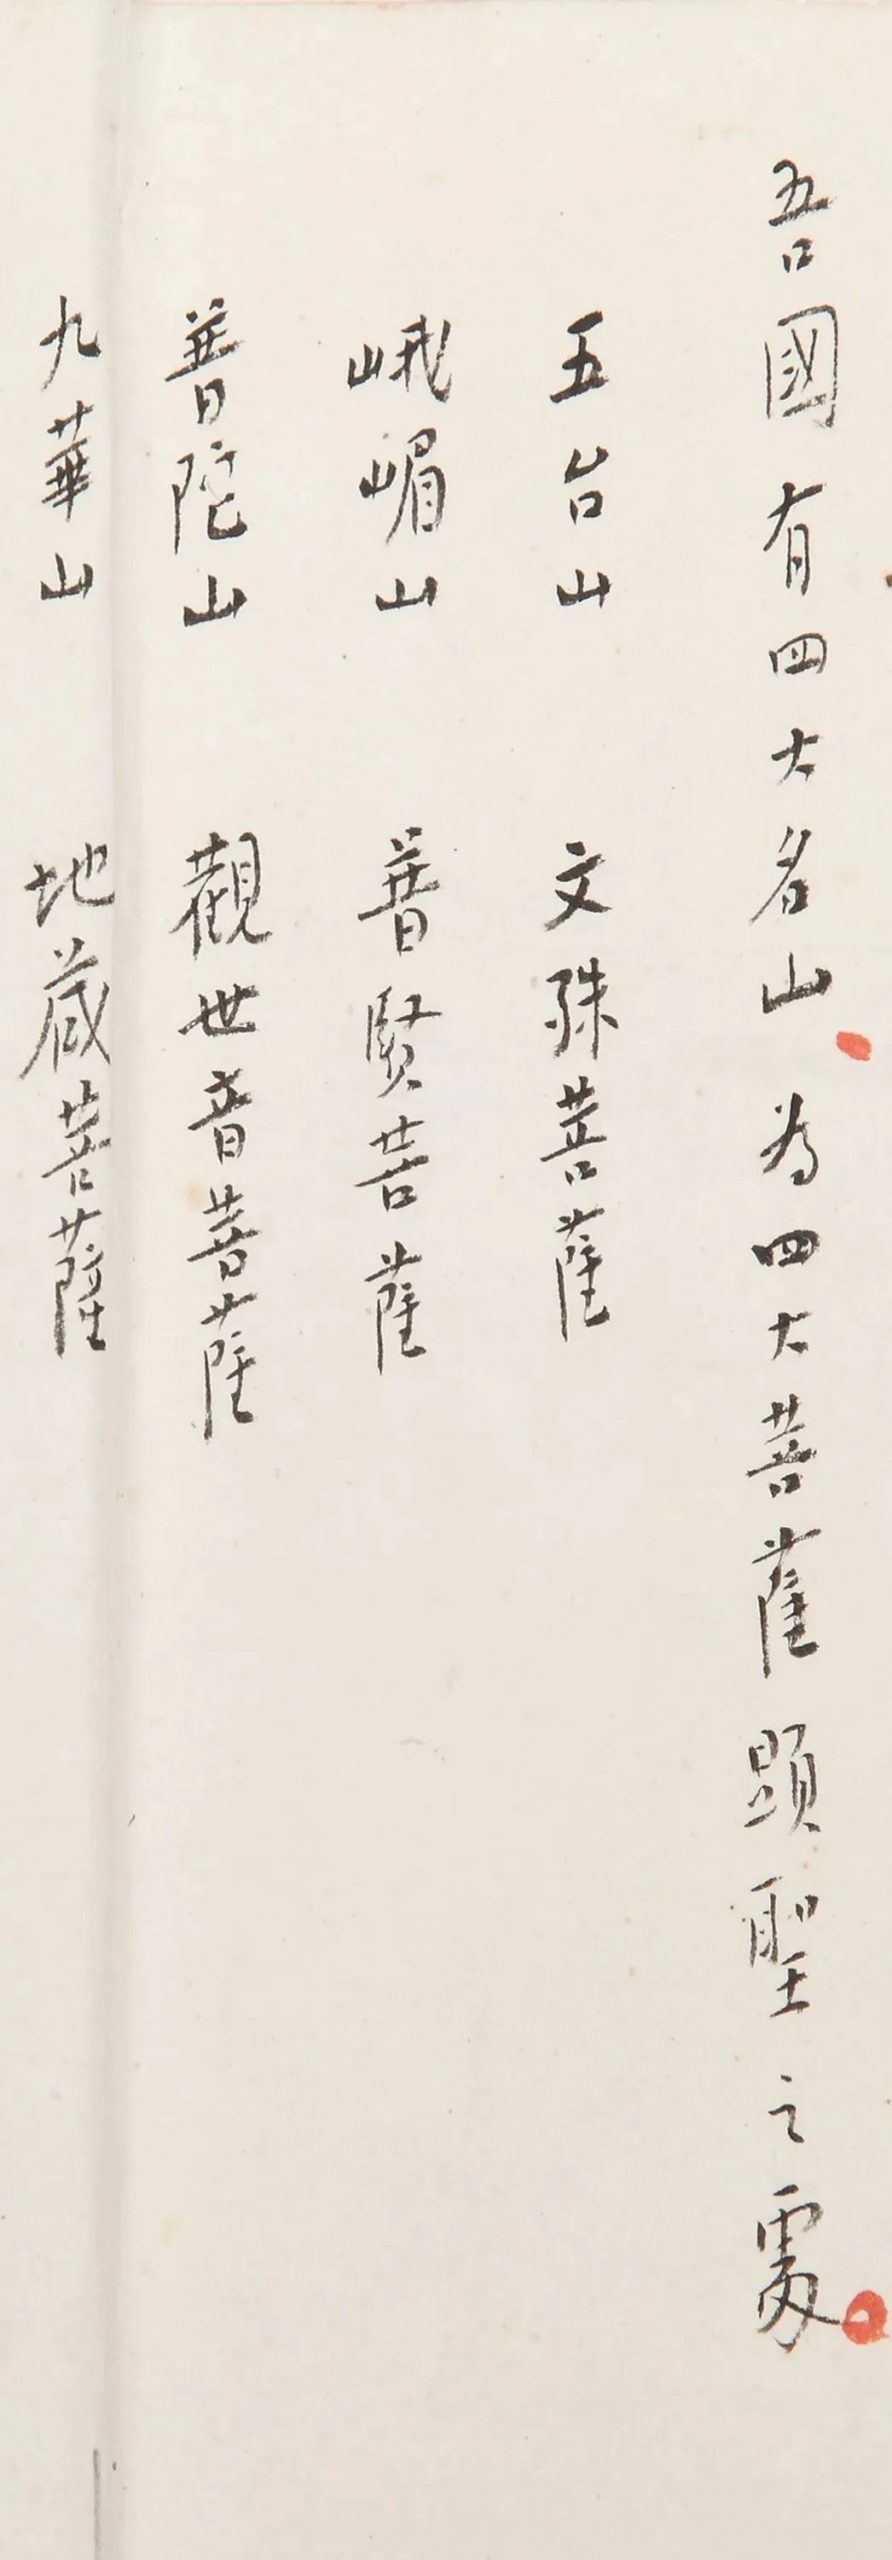 吾國有四大名山為四大菩薩顕聖之處
五台山 文殊菩薩
峨嵋山 普賢菩薩
普陀山 觀世音菩薩
九華山 地蔵菩薩